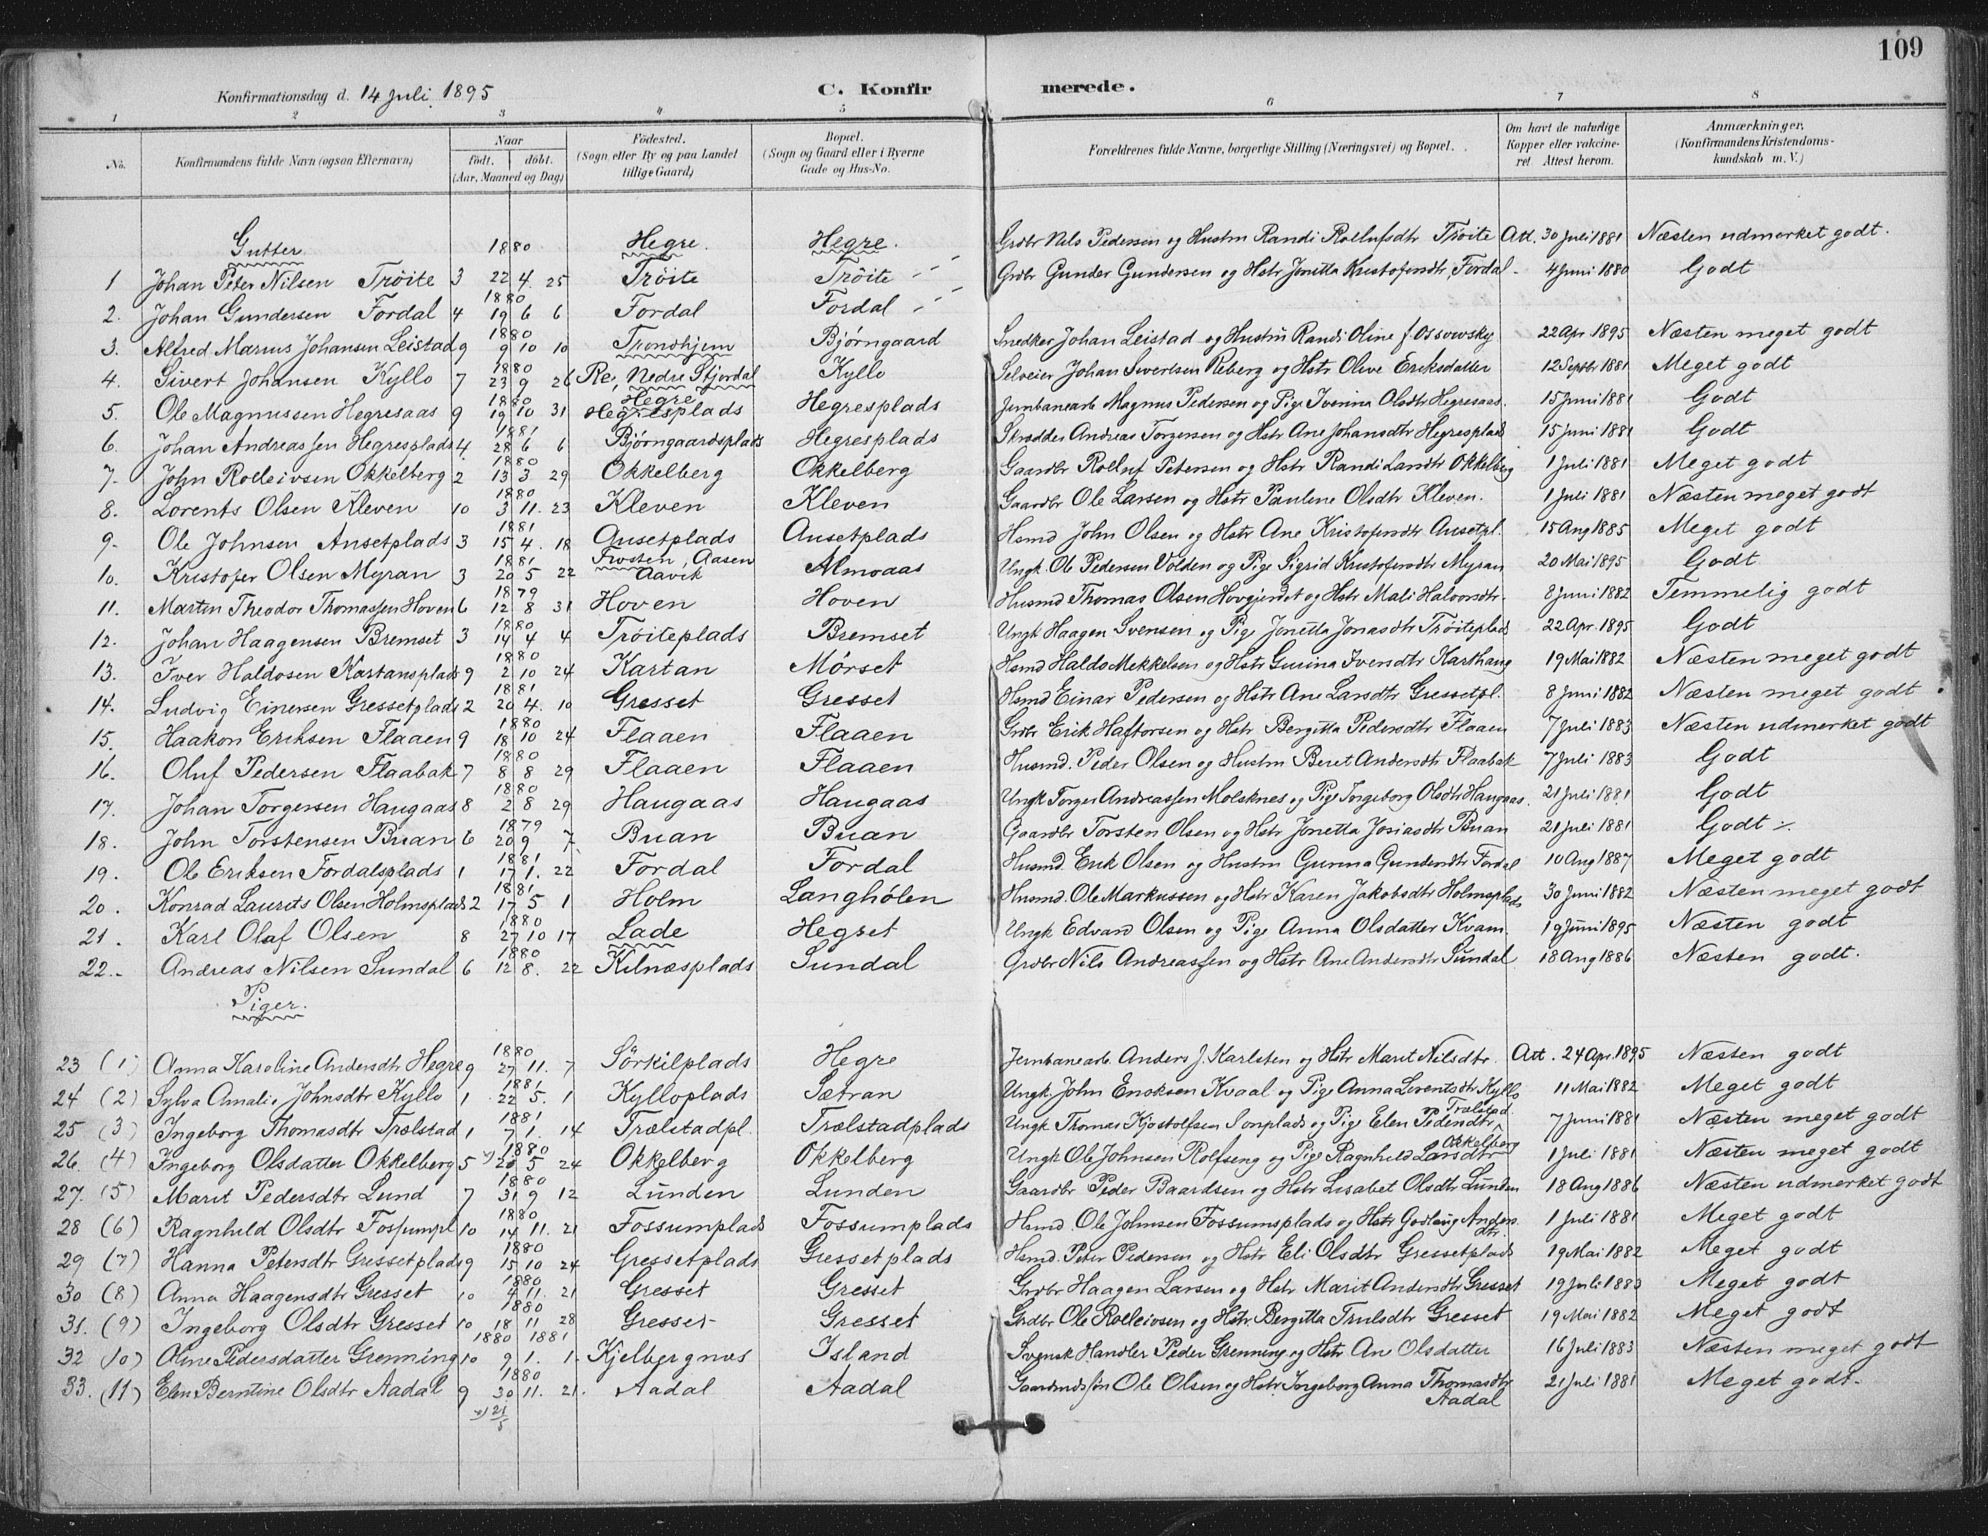 109
Konfirmationsdag d. 14 Juli 1895 C. Konfirmerede.
1 2 3 4 5 6 7 8
No. Konfirmandens fulde Navn (ogsaa Efternavn) Naar födt. döbt. (Aar, Maaned og Dag) Födested. (Sogn eller By og paa Landet tillige Gaard) Bopæl. (Sogn og Gaard eller i Byerne Gade og Hus-No. Forældrenes fulde Navne, borgerlige Stilling (Næringsvei) og Bopæl. Om havt de naturlige Kopper eller vakcineret. Attest herom. Anmærkninger. (Konfirmandens Kristendomskundskab m. V.)
Gutter 1880 Hegre. Hegre.
1 Johan Peter Nilsen Tröite 3 22 4. 25 Tröite Tröite Grdbr Nils Pedersen og Hustru Randi Rollufsdtr Tröite Att. 30 Juli 1881 Næsten udmerket godt.
2. Johan Gundersen Fordal 4 1880 19 6 6 Fordal Fordal Grdbr Gunder Gundersen og Hstr Jonetta Kristofersdtr Fordal 4 Juni 1880 Godt
3. Alfred Marius Johansen Leistad 9 1880 9 10 10 Trondhjem Bjørngaard Snedker Johan Leistad og Hustru Randi Oline f. Ossowsky 22 Apr. 1895 Næsten meget godt
4. Sivert Johansen Kyllo 7 1880 23 9 26 Re, Nedre Stjørdal Kyllo Selveier Johan Sivertsen Reberg og Hstr Olive Eriksdatter 12 Septbr 1881 Meget godt
5. Ole Magnussen Hegresaas 9 1880 19 10 31 Hegre Hegresplads Hegresplads Jernbanearb Magnus Pedersen og Pige Ivanna Olsdtr Hegresaas 15 Juni 1881 Godt
6. Johan Andreassen Hegresplads 4 1881 28 6 6 Bjørngaardsplads Hegresplads Skrædder Andreas Torgersen og Hstr Ane Johansdtr Hegresplads 15 Juni 1881 Godt
7- John Rolleivsen Okkelberg 2 1880 13 3 29 Okkelberg Okkelberg Gaardbr Rolluf Petersen og Hstr Randi Larsdtr Okkelberg 1 Juli 1881 Meget godt
8. Lorents Olsen Kleven 10 1880 3 11. 23 Kleven Kleven Gaardbr Ole Larsen og Hstr Pauline Olsdtr Kleven. 1 Juli 1881 Næsten meget godt
9- Ole Johnsen Ansetplads 3 1881 15 4. 18 Ansetplads Ansetplads Hsmd John Olsen og Hstr Ane Kristofersdtr Ansetpl. 15 Aug 1885 Meget godt
10. Kristofer Olsen Myran 3 1881 20 5 22 Frosten, Aasen Aavik Almoaas Ungk. Ole Pedersen Volden og Pige Sigrid Kristofersdtr Myran 20 Mai 1895 Godt
11. Marten Theodor Thomassen Hoven 6 1879 12 8 31 Hoven Hoven Husmd Thomas Olsen Hovgjerdet og Hstr Mali Halvorsdtr. 8 Juni 1882 Temmelig godt
12. Johan Haagensen Bremset 3 1880 14 4 4 Tröiteplads Bremset Ungk Haagen Svensen og Pige Jonetta Jonasdtr Tröiteplads 22 Apr. 1895 Godt
13. Iver Haldosen Kartansplads 9 1880 2 10 24 Kartan Mörset Hsmd Haldo Mekkelsen og Hstr Gurina Iversdtr Karthang 19 Mai 1882 Næsten meget godt
14. Ludvig Einersen Gressetplads 2 1881 20 4. 10 Gresset Gresset Hsmd Einar Pedersen og Hstr Ane Larsdtr Gressetpl. 8 Juni 1882 Næsten meget godt
15. Haakon Eriksen Flaaen 9 1880 18 10 24 Flaaen Flaaen Grdbr Erik Haftorsen og Hstr Bergitta Pedersdtr Flaaen 7 Juli 1883 Næsten udmerket godt
16. Oluf Pedersen Flaabak 7 1880 8 8 29 Flaaen Flaaen Husmd. Peder Olsen og Hustru Beret Andersdtr Flaabak 7 Juli 1883 Godt
17. Johan Torgersen Haugaas 8 1880 2 8 29 Haugaas Haugaas Ungk Torger Andreassen Molsknes og Pige Ingeborg Olsdtr Haugaas. 21 Juli 1881 Godt
18. John Torstensen Buan 6 1879 20 9 7. Buan Buan Gaardbr Torsten Olsen og Hstr Jonetta Josiasdtr Buan 21 Juli 1881 Godt
19. Ole Eriksen Fordalsplads 1 1881 17 1. 22 Fordal Fordal Husmd. Erik Olsen og Hustru Gurina Gundersdtr Fordal 10 Aug 1887 Meget godt
20. Konrad Laurits Olsen Holmsplads 2 1881 17 5 1 Holm Langhölen Husmd. Ole Markussen og Hstr Karen Jakobsdtr Holmsplads 30 Juni 1882 Næsten meget godt
21. Karl Olaf Olsen 8 1880 27 10 17 Lade Hegset Ungk Edvard Olsen og Pige Anna Olsdatter Kvam. 19 Juni 1895 Næsten godt
22.- Andreas Nilsen Sundal 6 1880 12 8. 22 Kilnæsplads Sundal Grdbr Nils Andreassen og Hstr Ane Andersdtr Sundal 18 Aug 1886 Næsten godt.
Piger.
23 (1) Anna Karoline Andersdtr Hegre 9 1880 27 11. 7 Sörkilplads Hegre Jernbanearb. Anders J. Karlsten og Hstr Marit Nilsdtr. Att. 24 Apr. 1895 Næsten godt
24 (2) Sylva Amalie Johnsdtr Kyllo 1 1881 22 5. 1 Kylloplads Sætran Ungk. John Eriksen Kvaal og Pige Anna Lorentsdtr Kyllo 11 Mai 1882 Meget godt
25 (3) Ingeborg Thomasdtr Trælstad 1 1881 7 1. 14 Trælstadpl. Trælstadplads Ungk Thomas Kjostolfsen Sonplads og Pige Elen Pedersdtr Trælstad. 7 Juni 1881 Næsten meget godt
26. (4) Ingeborg Olsdatter Okkelberg 5 x) 1880 20 5 24 Okkelberg Okkelberg Ungk Ole Johnsen Rolfseng og Pige Ragnhild Larsdtr Okkelberg 1 Juli 1881 Næsten meget godt
27. (5) Marit Pedersdtr Lund 7 1880 31 9 12 Lunden Lunden Gaardbr Peder Baardsen og Hstr Lisabet Olsdtr Lunden 18 Aug 1886 Næsten udmerket godt
28 (6) Ragnhild Olsdtr Fossumpl 10 1880 14 11. 21 Fossumplads Fossumplads Hsmd. Ole Johnsen Fossumsplads og Hstr Godlaug Andersdtr. 1 Juli 1881 Meget godt
29 (7) Hanna Petersdtr Gressetplads 9 1880 15 10 24 Gressetplads Gressetplads Hsmd. Peter Pedersen og Hstr Eli Olsdtr Gressetplads 19 Mai 1882 Meget godt
30 (8) Anna Haagensdtr Gresset 10 1880 4 11. 21 Gresset Gresset Grdbr Haagen Larsen og Hstr Marit Andersdtr Gresset 19 Juli 1883 Meget godt
31. (9) Ingeborg Olsdtr Gresset 10 1880 18 11 28 Gresset Gresset Grdbr Ole Rolleivsen og Hstr. Bergitta Trulsdtr Gresset 19 Mai 1882 Meget godt
32 (10) Oline Pedersdatter Grenning 10 1880 9 1881 1. 1. Kjelbergnæs Island Svensk Handler Peder Grenning og Hstr Ane Olsdatter 16 Juli 1883 Næsten meget godt
33. (11) Elen Berntine Olsdtr Aadal 9 1880 30 11. 21. Aadal Aadal Gaardmdssøn Ole Olsen og Hstr Ingeborg Anna Thomasdtr Aadal 21 Juli 1881 Meget godt.
x) 21/5